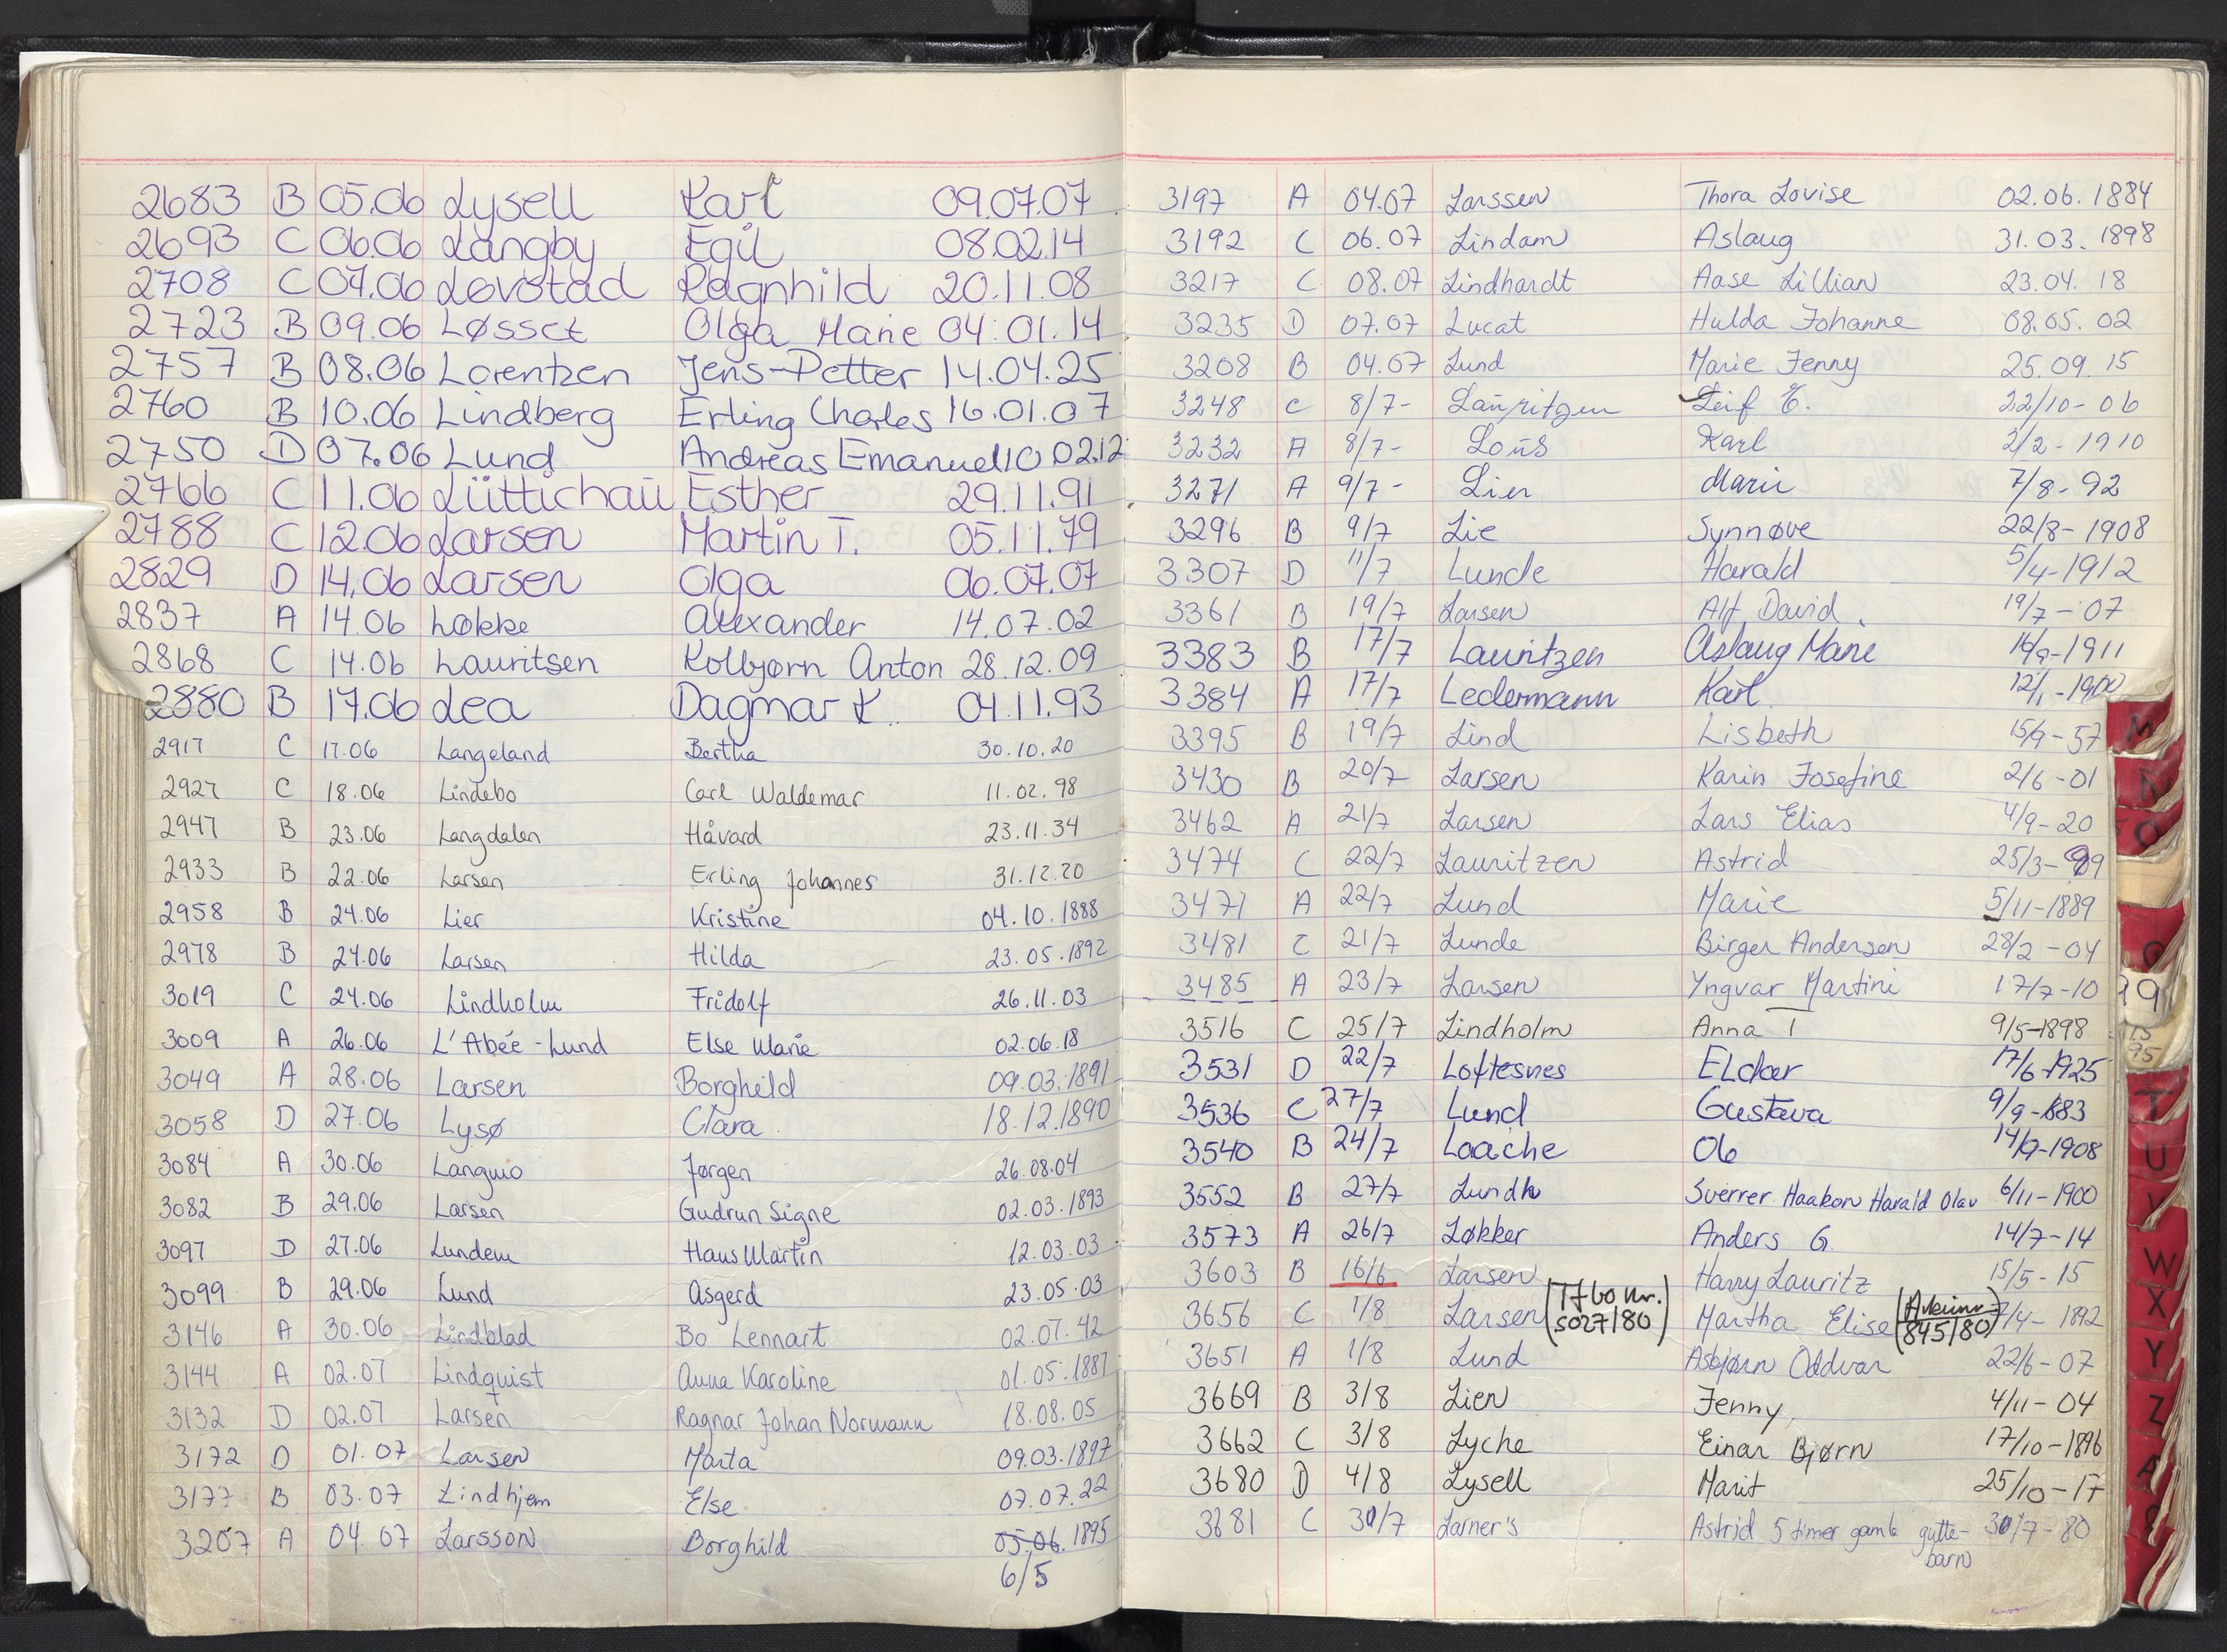 2683 B 05.06 Lysell Karl 09.07.07
2693 C 06.06 Langby Egil 08.02.14
2708 C 07.06 Løvstad Ragnhild 20.11.08
2723 B 09.06 Løsset Olga Marie 04.01.14
2757 B 08.06 Lorentzen Jens-Petter 14.04.25
2760 B 10.06 Lindberg Erling Charles 16.01.07
2750 D 07.06 Lund Andreas Emanuel 10 02.12
2766 C 11.06 Lüttichau Esther 29.11.91
2788 C 12.06 Larsen Martin T. 05.11.79
2829 D 14.06 Larsen Olga 06.07.07
2837 A 14.06 Løkke Alexander 14.07.02
2868 C 14.06 Lauritsen Kolbjørn Anton 28.12.09
2880 B 17.06 Lea Dagmar K. 04.11.93
2917 C 17.06 Langeland Bertha 30.10.20
2927 C 18.06 Lindebo Carl Waldemar 11.02.98
2947 B 23.06 Langdalen Håvard 23.11.34
2933 B 22.06 Larsen Erling Johannes 31.12.20
2958 B 24.06 Lier Kristine 04.10.1888
2978 B 24.06 Larsen Hilda 23.05.1892
3019 C 24.06 Lindholm Fridolf 26.11.03
3009 A 26.06 L'Abée-Lund Else Marie 02.06.18
3049 A 28.06 Larsen Borghild 09.03.1891
3058 D 27.06 Lysø Clara 18.12.1890
3084 A 30.06 Langmo Jørgen 26.08.04
3082 B 29.06 Larsen Gudrun Signe 02.03.1893
3097 D 27.06 Lundem Hans Martin 12.03.03
3099 B 29.06 Lund Asgerd 23.05.03
3146 A 30.06 Lindblad Bo Lennart 02.07.42
3144 A 02.07 Lindquist Anna Karoline 01.05.1887
3132 D 02.07 Larsen Ragnar Johan Normann 18.08.05
3172 D 01.07 Larsen Marta 09.03.1897
3177 B 03.07 Lindhjem Else 07.07.22
3207 A 04.07 Larsson Borghild 05.06.1895
6/5
3197 A 04.07 Larssen Thora Lovise 02.06.1884
3192 C 06.07 Lindam Aslaug 31.03.1898
3217 C 08.07 Lindhardt Aase Lillian 23.04.18
3235 D 07.07 Lucat Hulda Johanne 08.05.02
3208 B 04.07 Lund Marie Jenny 25.09.15
3248 C 8/7- Lauritzen Leif E. 22/10-06
3232 A 8/7- Karl 2/2-1910
3271 A 9/7- Lien Marie 7/8-92
3296 B 9/7 Lie Synnøve 22/8-1908
3307 D 11/7 Lunde Harald 5/4-1912
3361 B 19/7 Larsen Alf David 19/7-07
3383 B 17/7 Lauritzen Aslaug Marie 16/9-1911
3384 A 17/7 Ledermann Karl 12/1-1900
3395 B 19/7 Lind Lisbeth 15/9-57
3430 B 20/7 Larsen Karin Josefine 2/6-01
3462 A 21/7 Larsen Lars Elias 4/9-20
3474 C 22/7 Lauritzen Astrid 25/3-99
3471 A 22/7 Lund Marie 5/11-1889
3481 C 21/7 Lunde Birger Andersen 28/2-04
3485 A 23/7 Larsen Yngvar Martini 17/7-10
3516 C 25/7 Lindholm Anna T 9/5-1898
3531 D 22/7 Loftesnes Eldar 17/6-1925
3536 C 27/7 Lund Gustava 9/9-1883
3540 B 24/7 Laache Ole 14/9-1908
3552 B 27/7 Lundh Sverrer Haakon Harald Olav 6/11-1900
3573 A 26/7 Løkker Anders G. 14/7-14
3603 B 16/6 Larsen Harry Lauritz 15/5-15
3656 C 1/8 Larsen (Tfbo nr. 5027/80) Martha Elise (845/80) 7/4-1892
3651 A 1/8 Lund Asbjørn Oddvar 22/6-07
3669 B 3/8 Lien Jenny 4/11-04
3662 C 3/8 Lyche Einar Bjørn 17/10-1896
3680 D 4/8 Lysell Marit 25/10-17
3681 C 30/7 Larner's Astrid 5 timer gamle gutte- 30/7-80
barn
M
N
O
T
U
V
W
X
Y
Z